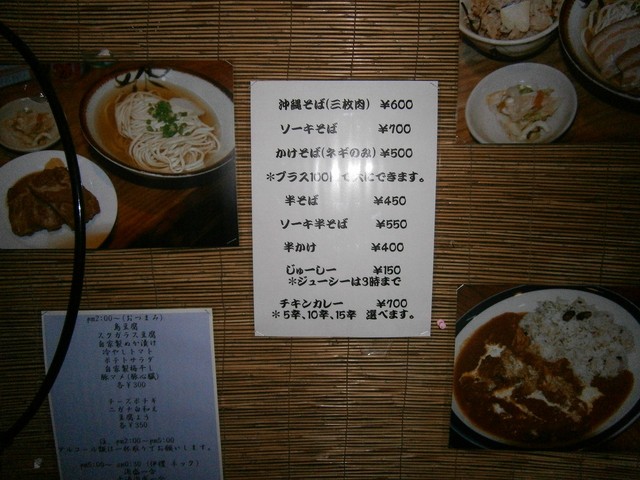 沖縄そば(三枚肉) ¥600
ソーキそば ¥700
かけそば(ネギのみ) ¥500
*プラス100 大にできます。
半そば ¥450
ソーキ半そば ¥550
半かけ ¥400
じゅーしー ¥150
*ジューシーは9時まで
チキンカレー ¥700
*5辛、10辛、15辛 選べます。
pm2:00~(おつまみ)
島豆腐
スクガラス豆腐
自家製ぬか漬け
冷やしトマト
ポテトサラダ
自家製梅干し
各¥300
チーズポテギ
豆腐よう
各¥350